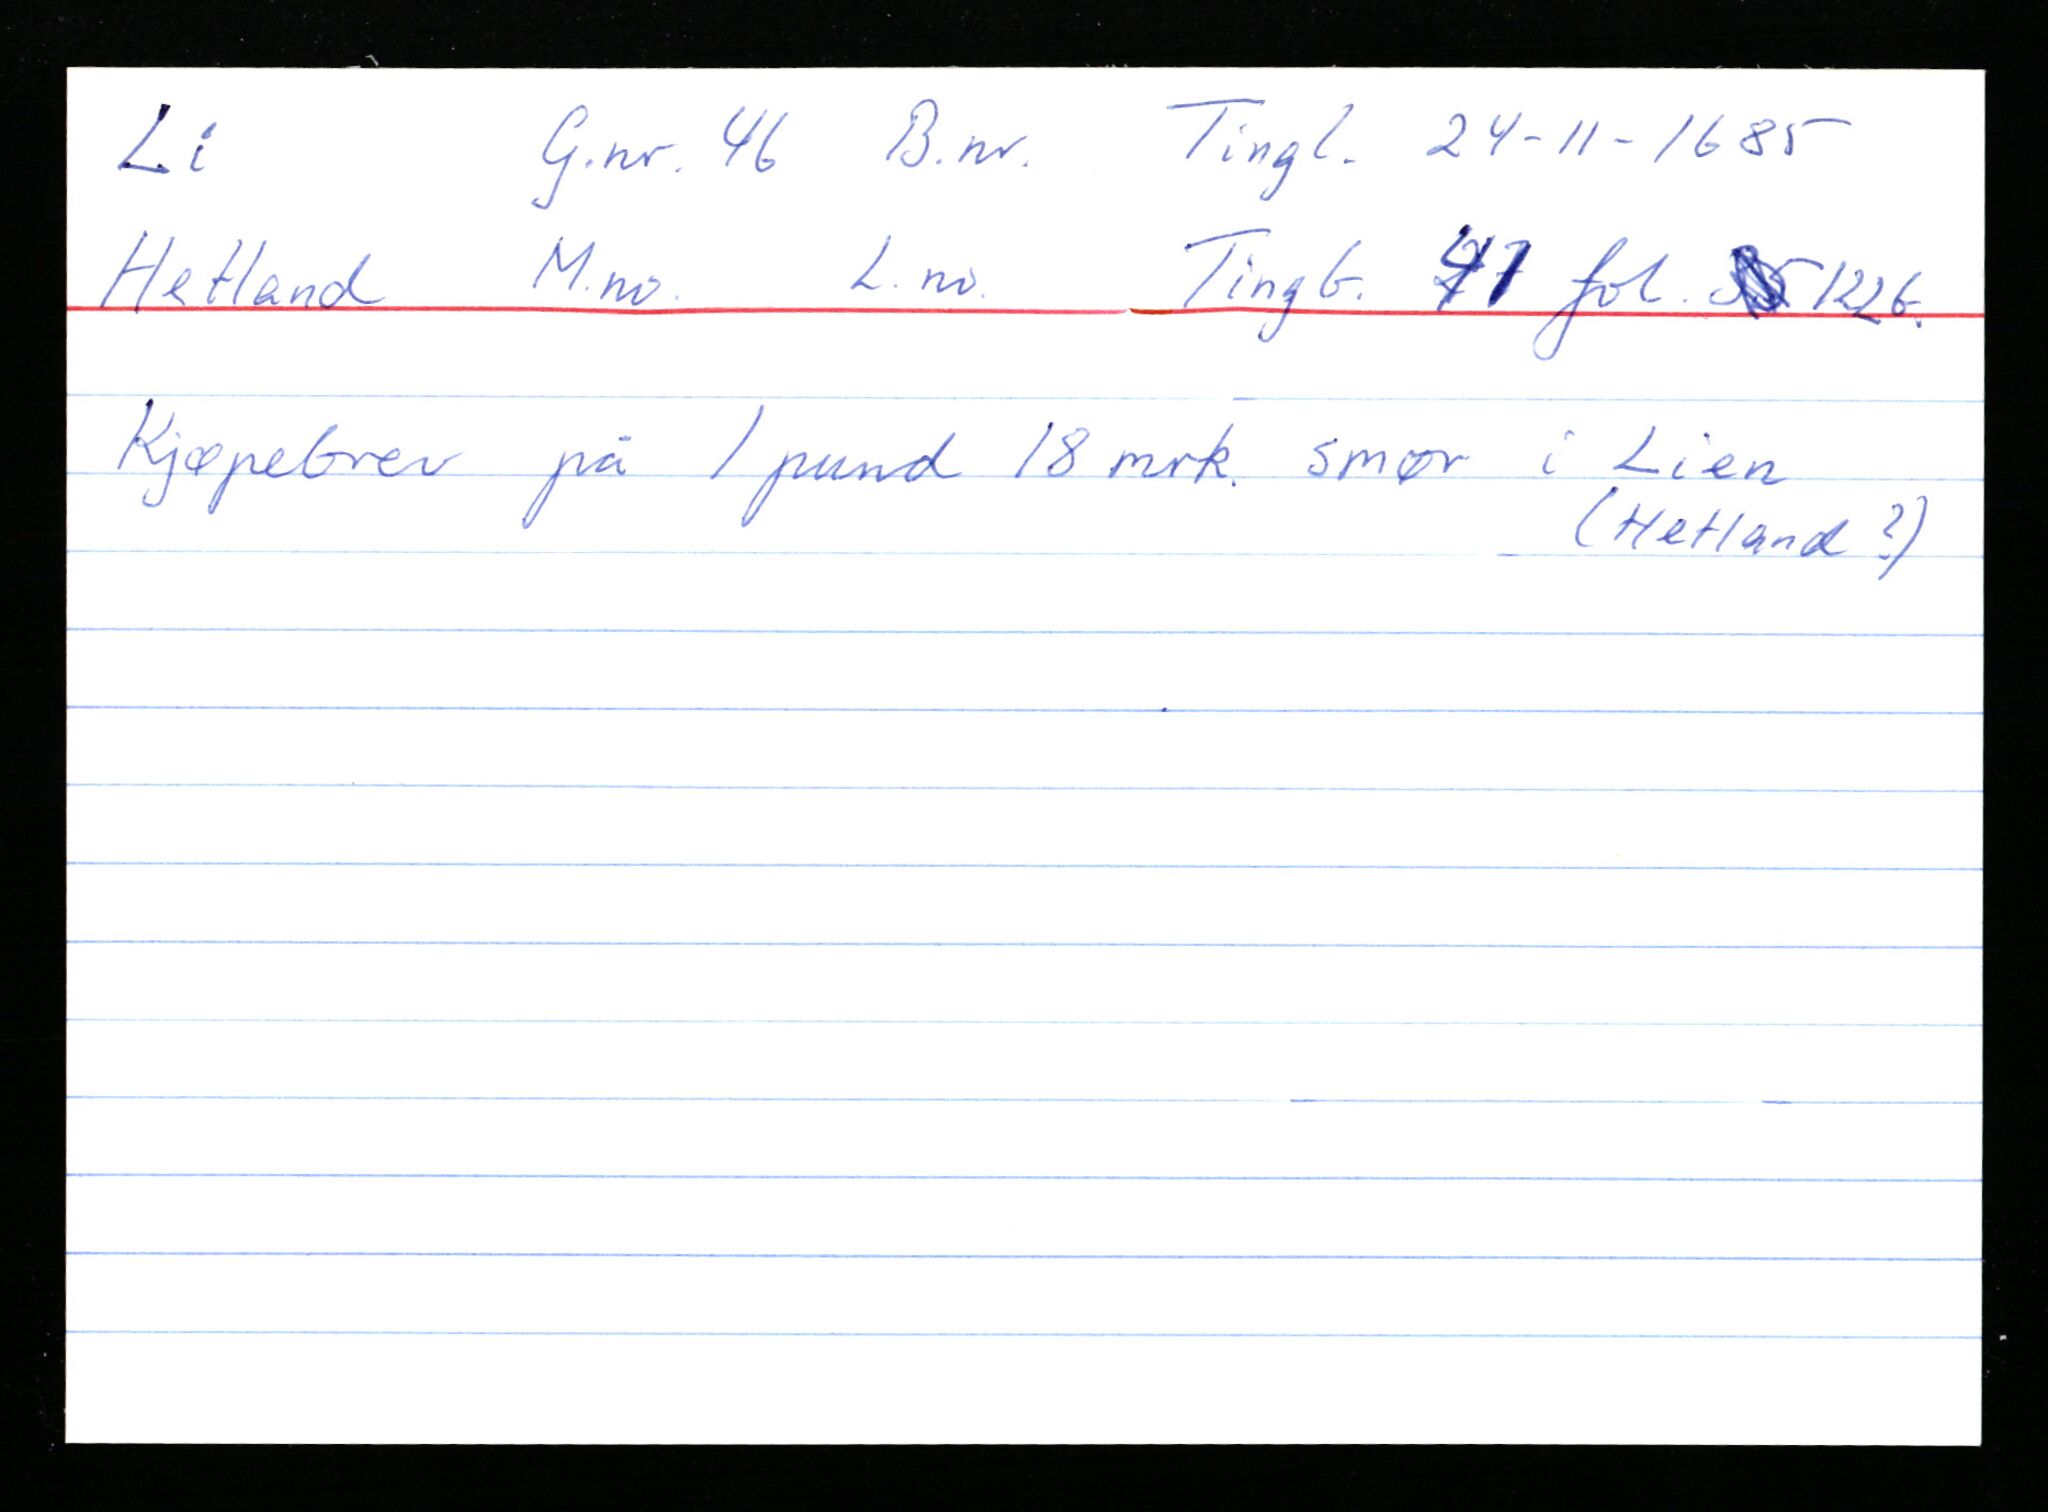 Li G.nr. 46 B.nr. Tingl. 24-11-1685
Hetland M.no. L.no. Tingb. 41 fol. 122b.
Kjøpebrev på 1 pund 18 mrk. smør i Lien
(Hetland?)